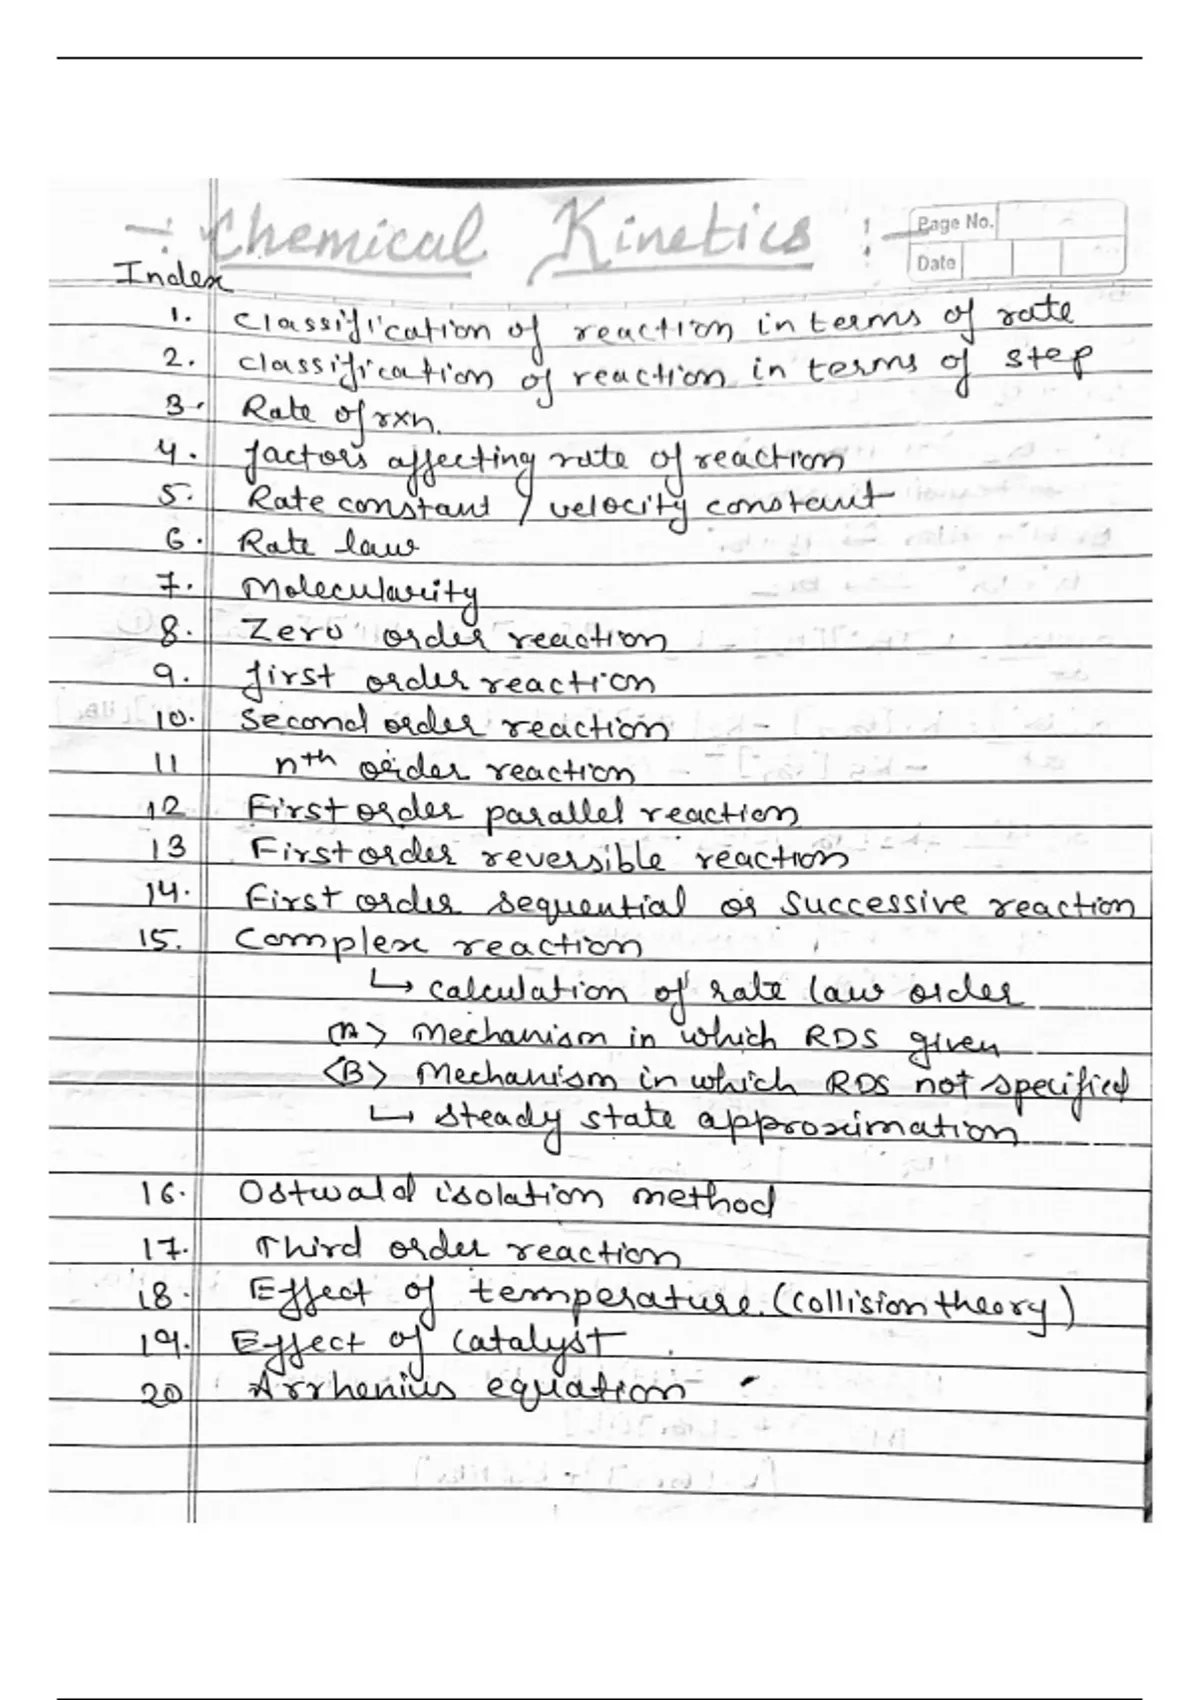 -: Chemical Kinetics :-
Page No.
Date
Index
1. Classification of reaction in terms of rate
2. classification of reaction in terms of step
3. Rate of rxn.
4. factors affecting rate of reaction
5. Rate constant / velocity constant
6. Rate law
7. Molecularity
8. Zero order reaction
9. first order reaction
10. Second order reaction
11 nth order reaction
12 First order parallel reaction
13 First order reversible reaction
14. First order sequential or Successive reaction
15. Complex reaction
↳ calculation of rate law order
(A> Mechanism in which RDS given
<B> Mechanism in which RDS not specified
↳ steady state approximation
16. Ostwald isolation method
17. Third order reaction
18. Effect of temperature. (collision theory)
19. Effect of catalyst
20 Arrhenius equation